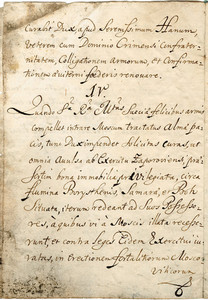 curabit Dux apud Serenissimum Hanum,
veterem cum Dominio Crimensi Confrater-
nitatem, Colligationem Armorum, et Confirma-
tionem aviterni foederis renovare.
IV.
Quando Sa Ra Mtas Sueciæ felicibus armis
compellet intrare Moscum Tractatus Almæ pa-
cis, tunc Dux impendet solicitas curas, ut
omnia Avulsa ab Exercitu Zaporoviensi præ-
sertim bona immobilia privilegiata, circa
flumina Borysthenem, Samara, et Boh
Situata, iterum redeant ad suos Possesso-
res, à quibus vi à Moscis illata recesse-
runt, et contra Leges Eidem Exercitui iu-
ratas, in Erectionem fortalitiorum Mosco-
viticorum